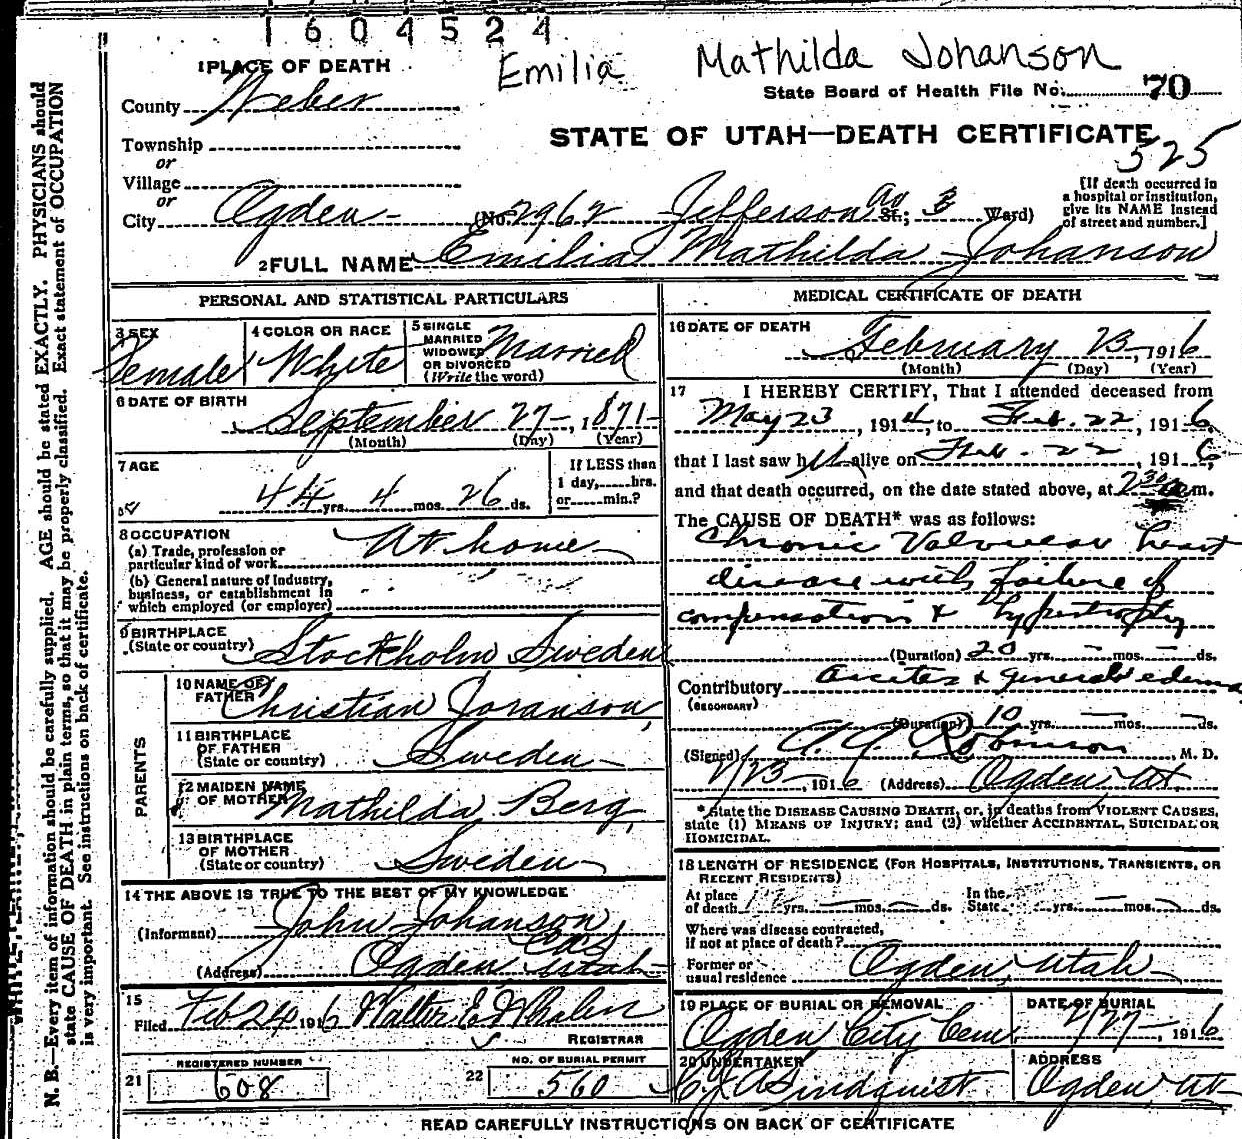 1604524
Emilia Mathilda Johanson
1 PLACE OF DEATH
County Weber
State Board of Health File No. 70
STATE OF UTAH—DEATH CERTIFICATE
525
Township
or
Village
or
City Ogden (No. 2962 Jefferson av St.; 3 Ward)
[If death occurred in
a hospital or institution,
give its NAME instead
of street and number.]
2 FULL NAME Emilia Mathilda Johanson
PERSONAL AND STATISTICAL PARTICULARS
3 SEX
Female
4 COLOR OR RACE
White
5 SINGLE
MARRIED
WIDOWED
OR DIVORCED
(Write the word)
Married
6 DATE OF BIRTH
September 27, 1871
(Month) (Day) (Year)
7 AGE
44 yrs. 4 mos. 26 ds.
If LESS than
1 day, hrs.
or min.?
8 OCCUPATION
(a) Trade, profession or
particular kind of work At home
(b) General nature of Industry,
business, or establishment in
which employed (or employer)
9 BIRTHPLACE
(State or country) Stockholm Sweden
PARENTS
10 NAME OF
FATHER Christian Joranson
11 BIRTHPLACE
OF FATHER
(State or country) Sweden
12 MAIDEN NAME
OF MOTHER Mathilda Berg
13 BIRTHPLACE
OF MOTHER
(State or country) Sweden
14 THE ABOVE IS TRUE TO THE BEST OF MY KNOWLEDGE
(Informant) John Johanson
(Address) Ogden Utah
15
Filed Feb 24 1916 Walter E Whalen
REGISTRAR
21 REGISTERED NUMBER
608
22 NO. OF BURIAL PERMIT
560
MEDICAL CERTIFICATE OF DEATH
16 DATE OF DEATH
February 23, 1916
(Month) (Day) (Year)
17 I HEREBY CERTIFY, That I attended deceased from
May 23, 1914, to Feb. 22, 1916,
that I last saw her alive on Feb. 22, 1916,
and that death occurred, on the date stated above, at 2 30 m.
The CAUSE OF DEATH* was as follows:
Chronic Valvular heart
disease with failure of
compensation & hypertrophy
(Duration) 20 yrs. — mos. — ds.
Contributory Ascites & general edema
(SECONDARY)
(Duration) 10 yrs. — mos. — ds.
(Signed) Robinson, M. D.
2/23, 1916 (Address) Ogden Ut.
* State the DISEASE CAUSING DEATH, or, in deaths from VIOLENT CAUSES,
state (1) MEANS OF INJURY; and (2) whether ACCIDENTAL, SUICIDAL OR
HOMICIDAL.
18 LENGTH OF RESIDENCE (FOR HOSPITALS, INSTITUTIONS, TRANSIENTS, OR
RECENT RESIDENTS)
At place
of death yrs. — mos. — ds.
In the
State yrs. — mos. — ds.
Where was disease contracted,
if not at place of death?
Former or
usual residence Ogden, Utah
19 PLACE OF BURIAL OR REMOVAL
Ogden City Cem
DATE OF BURIAL
2/27 1916
20 UNDERTAKER
Lindquist
ADDRESS
Ogden Ut
READ CAREFULLY INSTRUCTIONS ON BACK OF CERTIFICATE
N. B.—Every item of information should be carefully supplied. AGE should be stated EXACTLY. PHYSICIANS should
state CAUSE OF DEATH in plain terms, so that it may be properly classified. Exact statement of OCCUPATION
is very important. See instructions on back of certificate.